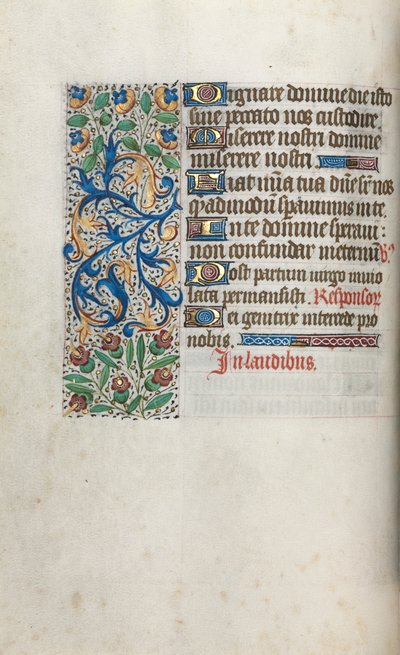 Dignare domine die isto
sine peccato nos custodire
Miserere nostri domine
miserere nostri.
Fiat mia tua dne sr nos
q̄admodū speravimus in te.
In te domine speravi:
non confundar in eternū. V̄s.
Post partum virgo invio
lata permansisti. Responsor
Dei genitrix intercede pro
nobis.
In laudibus.